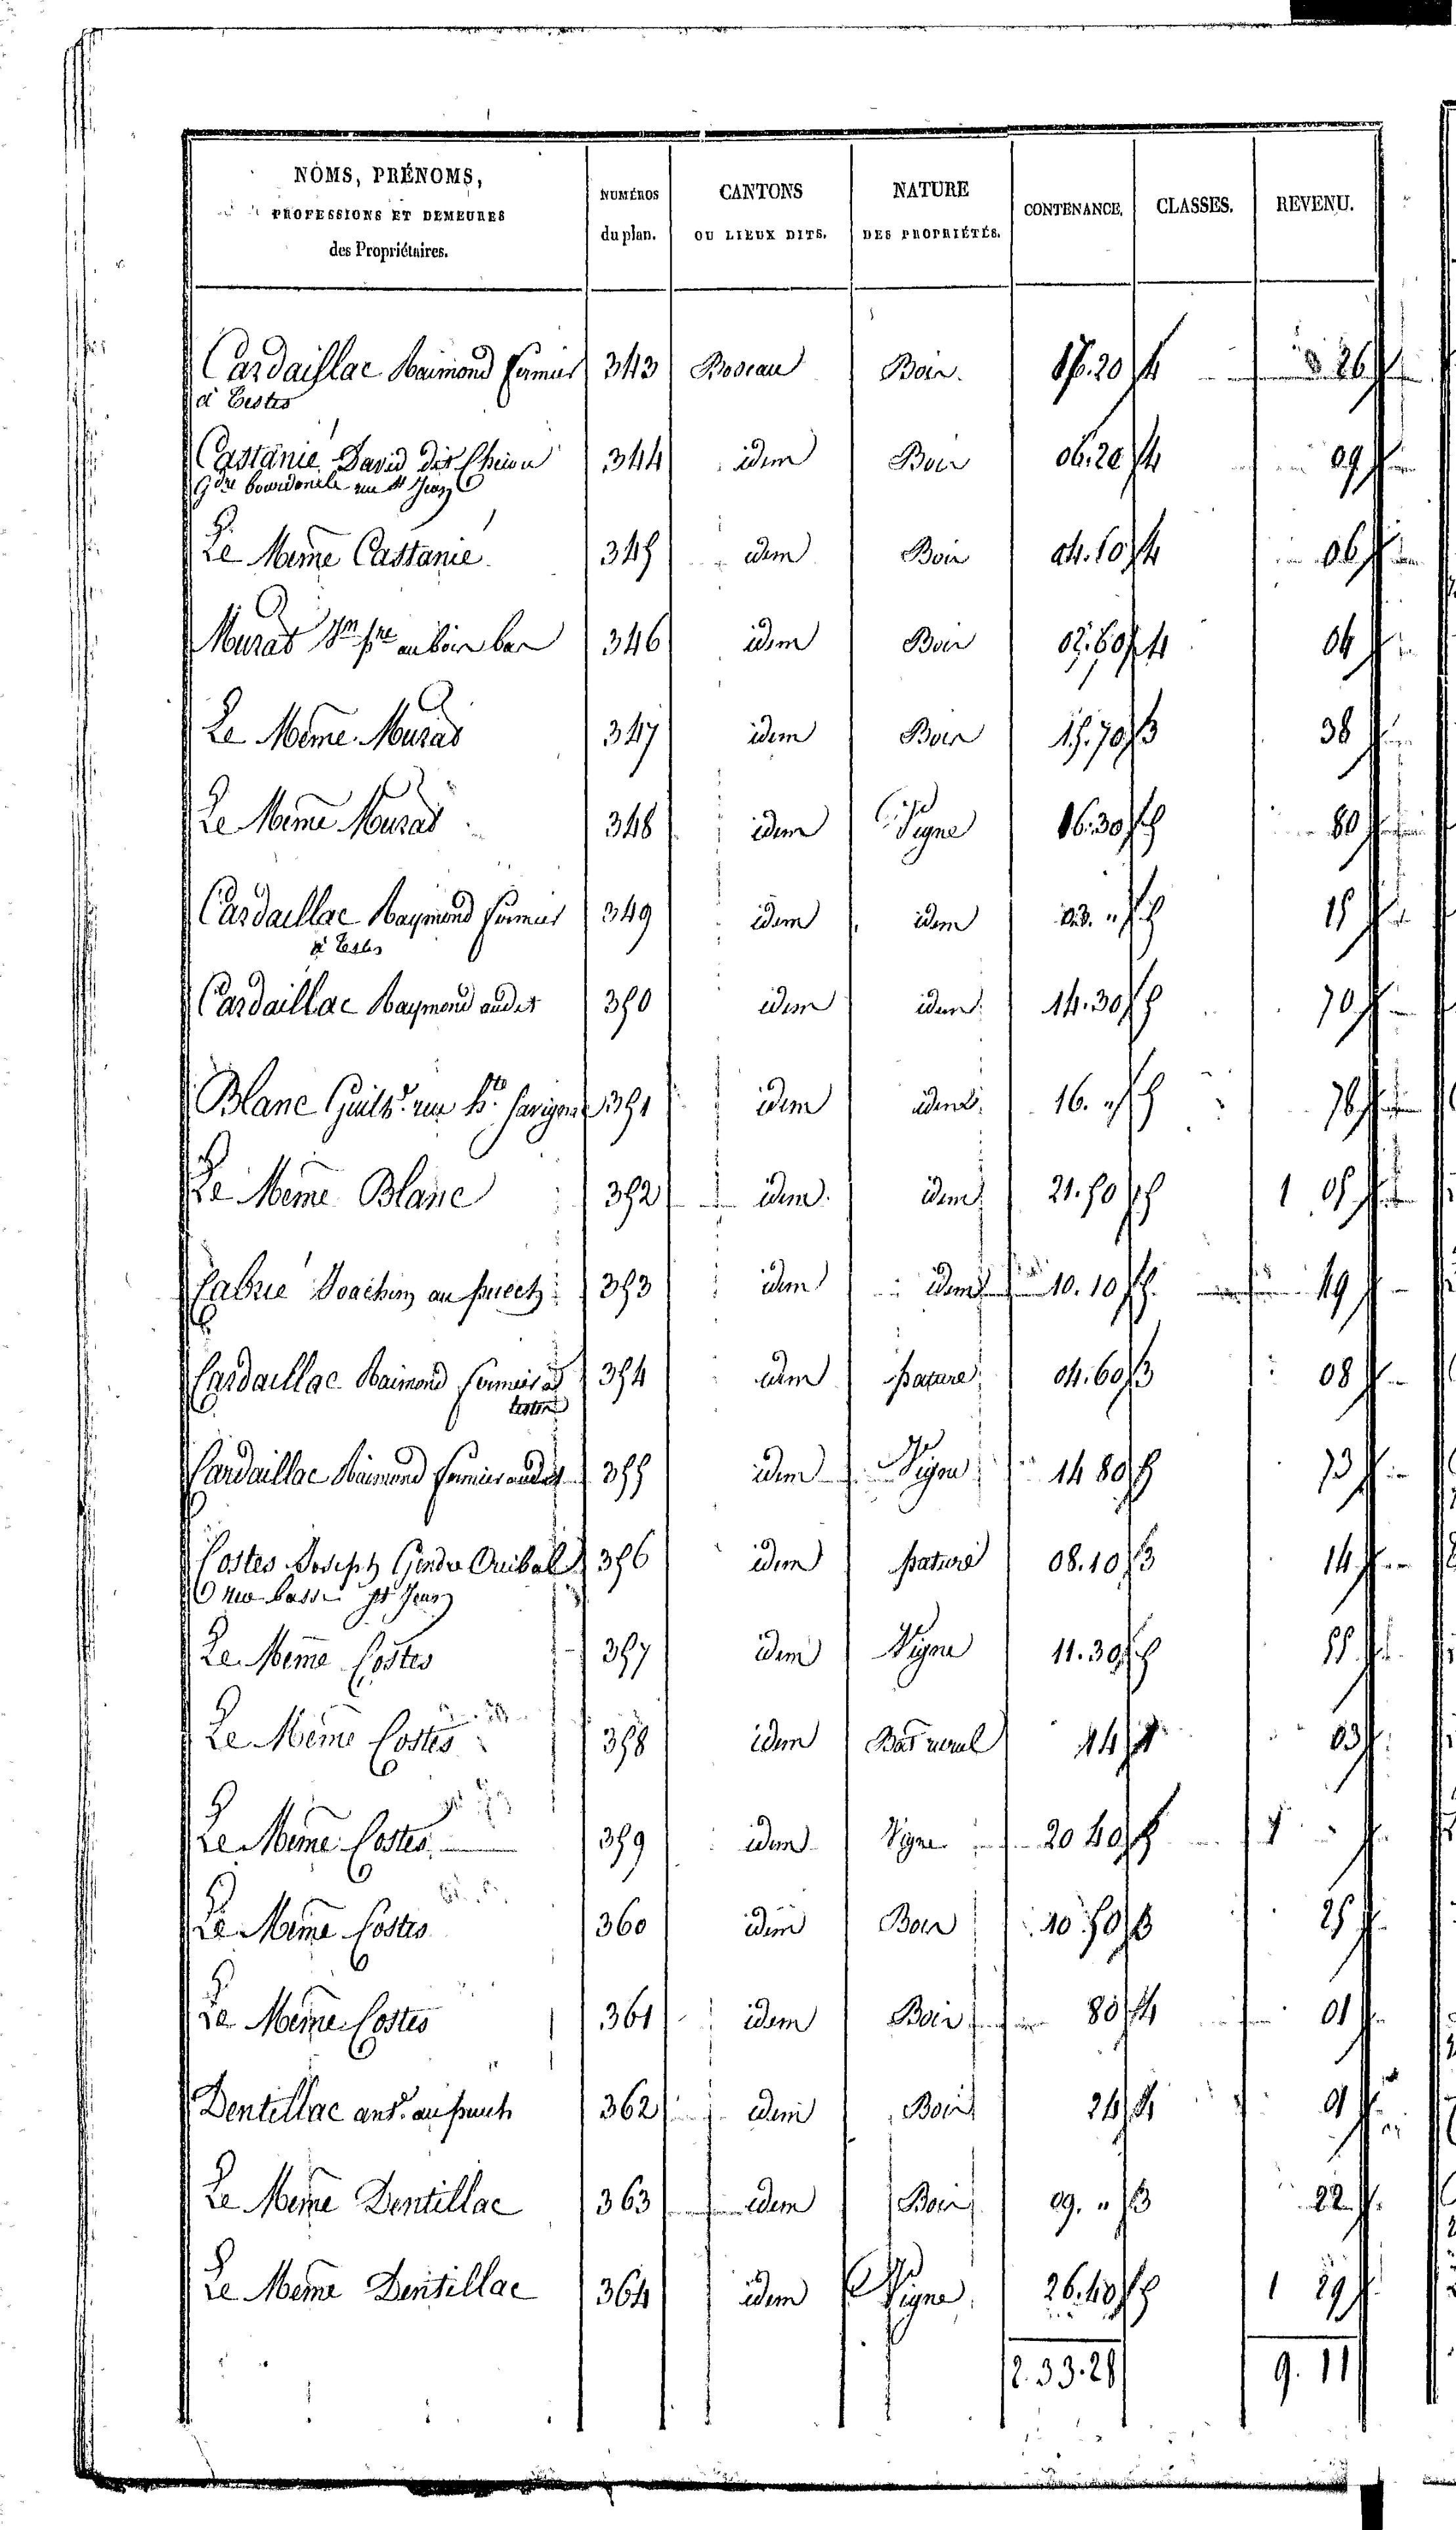 NOMS, PRÉNOMS, PROFESSIONS ET DEMEURES des Propriétaires. NUMÉROS du plan. CANTONS OU LIEUX DITS. NATURE DES PROPRIÉTÉS. CONTENANCE. CLASSES. REVENU.
Cardaillac Raimond fermier 343 Boscau Bois 17.20 4 26
à Testes
Castanié David dit 344 idem Bois 06.20 4 09
Gdre bourdoncle rue St Jean
Le Meme Castanié 345 idem Bois 04.10 4 06
Murat Jn pre au bois bas 346 idem Bois 02.60 4 04
Le Meme Murat 347 idem Bois 15.70 3 38
Le Meme Murat 348 idem Vigne 16.30 5 80
Cardaillac Raymond fermier 349 idem idem 03. " 5 15
à Testes
Cardaillac Raymond audit 350 idem idem 14.30 5 70
Blanc Guilh. rue Ste 351 idem idem 16. " 5 78
Le Meme Blanc 352 idem idem 21.50 5 1 05
Cabrié Joachim au puech 353 idem idem 10.10 5 49
Cardaillac Raimond fermier à 354 idem pature 04.60 3 08
testes
Cardaillac Raimond fermier audit 355 idem Vigne 14 80 5 73
Costes Joseph Gendre 356 idem pature 08.10 3 14
rue basse St Jean
Le Meme Costes 357 idem Vigne 11.30 5 55
Le Meme Costes 358 idem Bat rural 14 1 03
Le Meme Costes 359 idem Vigne 20 40 5 1
Le Meme Costes 360 idem Bois 10 50 3 25
Le Meme Costes 361 idem Bois 80 4 01
Dentillac ant. au puech 362 idem Bois 24 4 01
Le Meme Dentillac 363 idem Bois 09. " 3 22
Le Meme Dentillac 364 idem Vigne 26.40 5 1 29
2.33.28 9.11